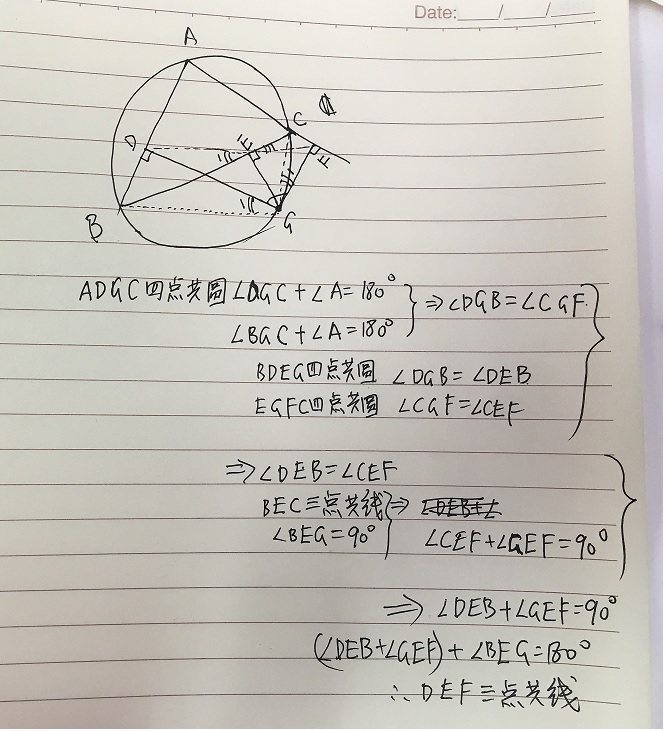 Date: / /
A
C
D
E
F
B
G
ADGC四点共圆∠DGC+∠A=180°
⇒∠DGB=∠CGF
∠BGC+∠A=180°
BDEG四点共圆 ∠DGB=∠DEB
EGFC四点共圆 ∠CGF=∠CEF
⇒∠DEB=∠CEF
BEC三点共线⇒
∠BEG=90° ∠CEF+∠GEF=90°
⇒ ∠DEB+∠GEF=90°
(∠DEB+∠GEF)+∠BEG=180°
∴DEF三点共线